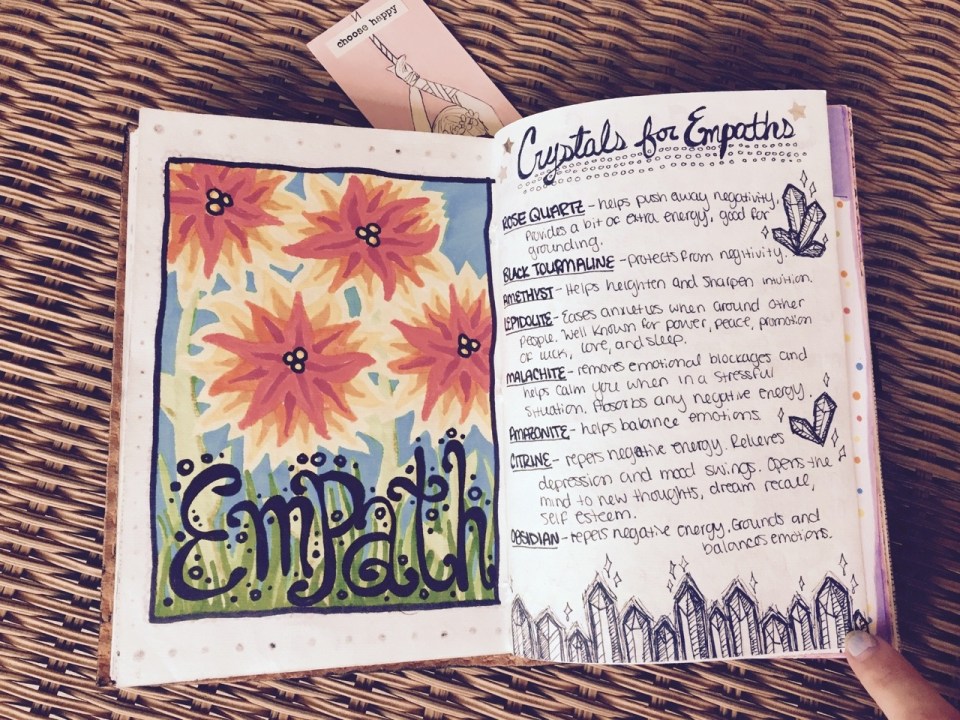 choose happy
Empath
Crystals for Empaths
ROSE QUARTZ - helps push away negativity,
Provides a bit of extra energy, good for
grounding.
BLACK TOURMALINE - protects from negitivity.
AMETHYST - Helps heighten and sharpen intuition.
LEPIDOLITE - Eases anxieties when around other
People. Well known for power, peace, promotion
of luck, love, and sleep.
MALACHITE - removes emotional blockages and
helps calm you when in a stressful
situation. Absorbs any negative energy.
AMAZONITE - helps balance emotions.
CITRINE - repels negative energy. Relieves
depression and mood swings. Opens the
mind to new thoughts, dream recall,
self esteem.
OBSIDIAN - repels negative energy. Grounds and
balances emotions.